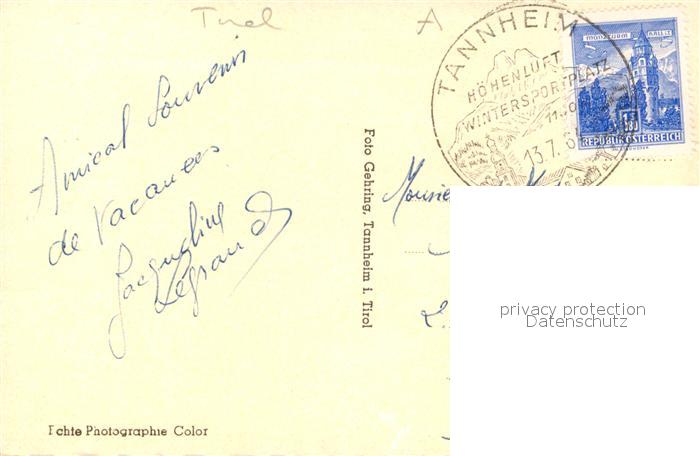 Tirol
A
TANNHEIM
HÖHENLUFT
WINTERSPORTPLATZ
13.7.6
MÜNZTURM HALL I.T.
1.80
REPUBLIK ÖSTERREICH
Amical Souvenir
de Vacances
Jacqueline
Legrand
Foto Gehring, Tannheim i. Tirol
Echte Photographie Color
privacy protection
Datenschutz